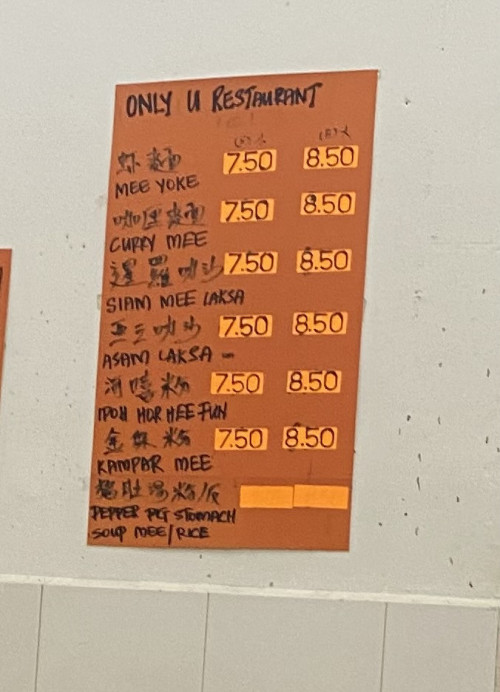 ONLY U RESTAURANT
(S)小 (B)大
虾麵 7.50 8.50
MEE YOKE
咖哩麵 7.50 8.50
CURRY MEE
暹羅叻沙 7.50 8.50
SIAM MEE LAKSA
亚三叻沙 7.50 8.50
ASAM LAKSA
河嘻粉 7.50 8.50
IPOH HOR HEE FUN
金保粉 7.50 8.50
KAMPAR MEE
猪肚湯粉/飯
PEPPER PIG STOMACH
SOUP MEE/RICE